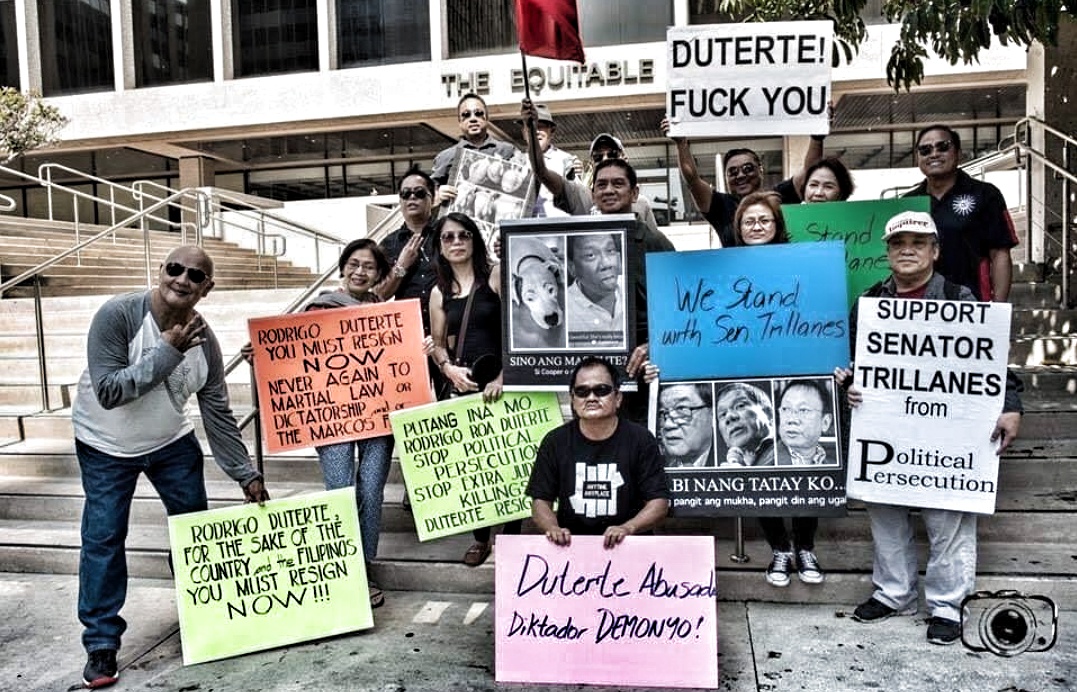 THE EQUITABLE
DUTERTE!
FUCK YOU
Stand
We Stand
with Sen. Trillanes
Inquirer
SUPPORT
SENATOR
TRILLANES
from
Political
Persecution
RODRIGO DUTERTE
YOU MUST RESIGN
NOW
NEVER AGAIN TO
MARTIAL LAW OR
DICTATORSHIP
THE MARCOS
SINO ANG
Si Cooper o
PUTANG INA MO
RODRIGO ROA DUTERTE
STOP POLITICAL
PERSECUTION
STOP EXTRA
KILLINGS
DUTERTE
ANYTIME
ANYPLACE
BI NANG TATAY KO...
pangit ang mukha, pangit din ang
RODRIGO DUTERTE,
FOR THE SAKE OF THE
COUNTRY and the FILIPINOS
YOU MUST RESIGN
NOW!!!
Duterte Abusado
Diktador DEMONYO!